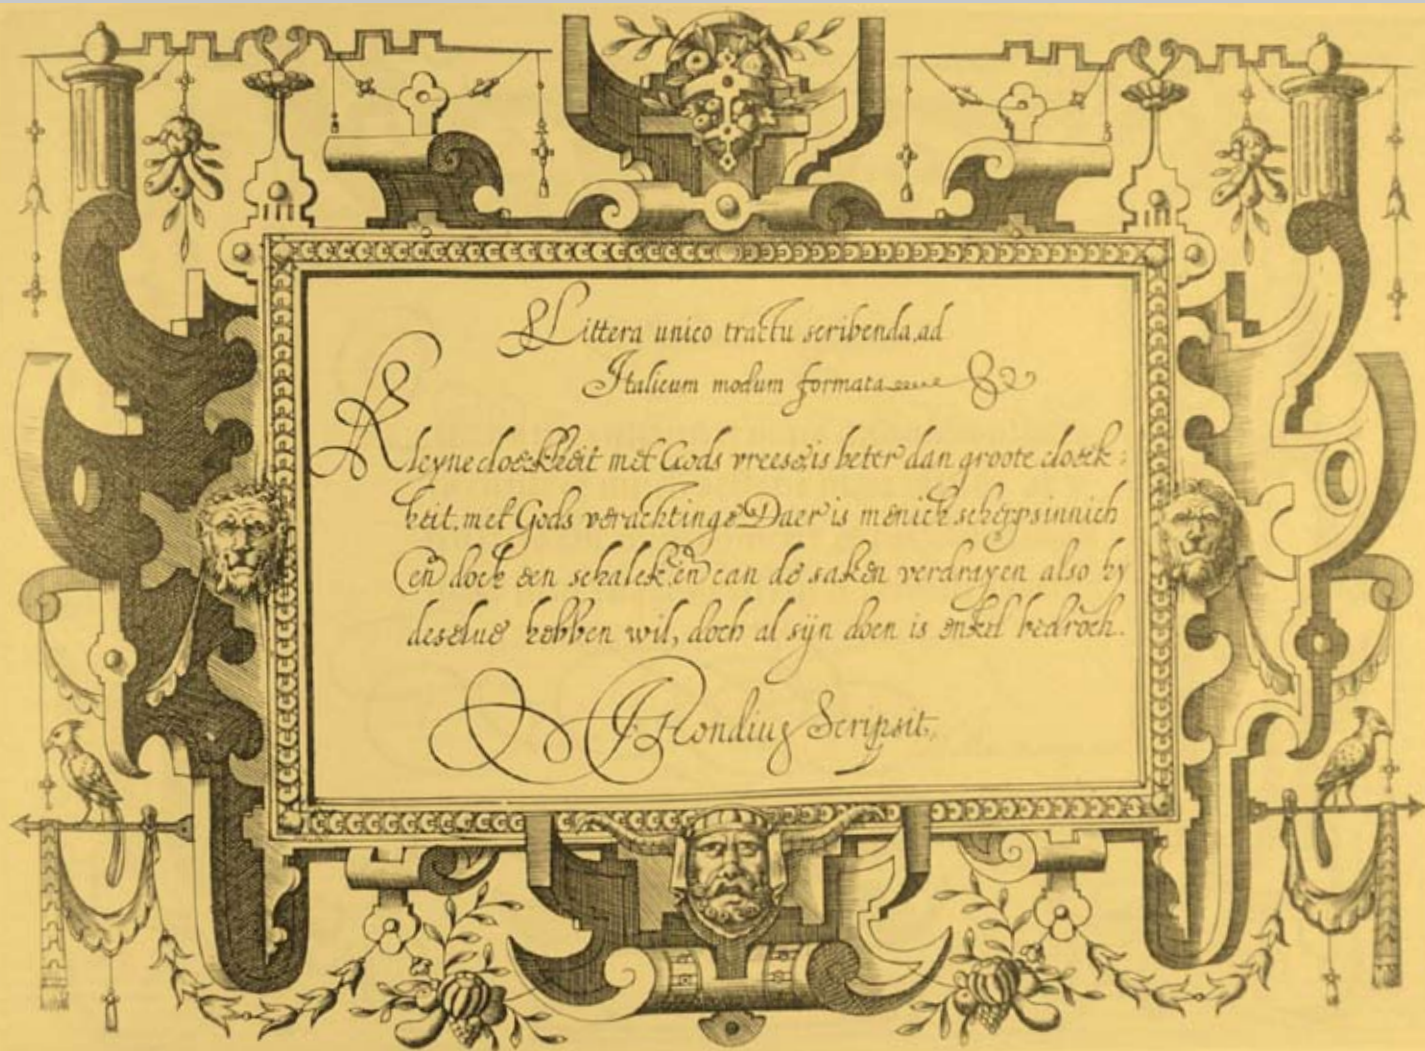 Littera unico tractu scribenda, ad
Italicum modum formata
Kleyne cloeckheit met Gods vreese, is beter dan groote cloeck:
heit, met Gods verachtinge. Daer is menich scherpsinnich
en doch een schalck en can de saken verdrayen also hy
deselue hebben wil, doch al sijn doen is enkel bedroch.
JHondius Scripsit,